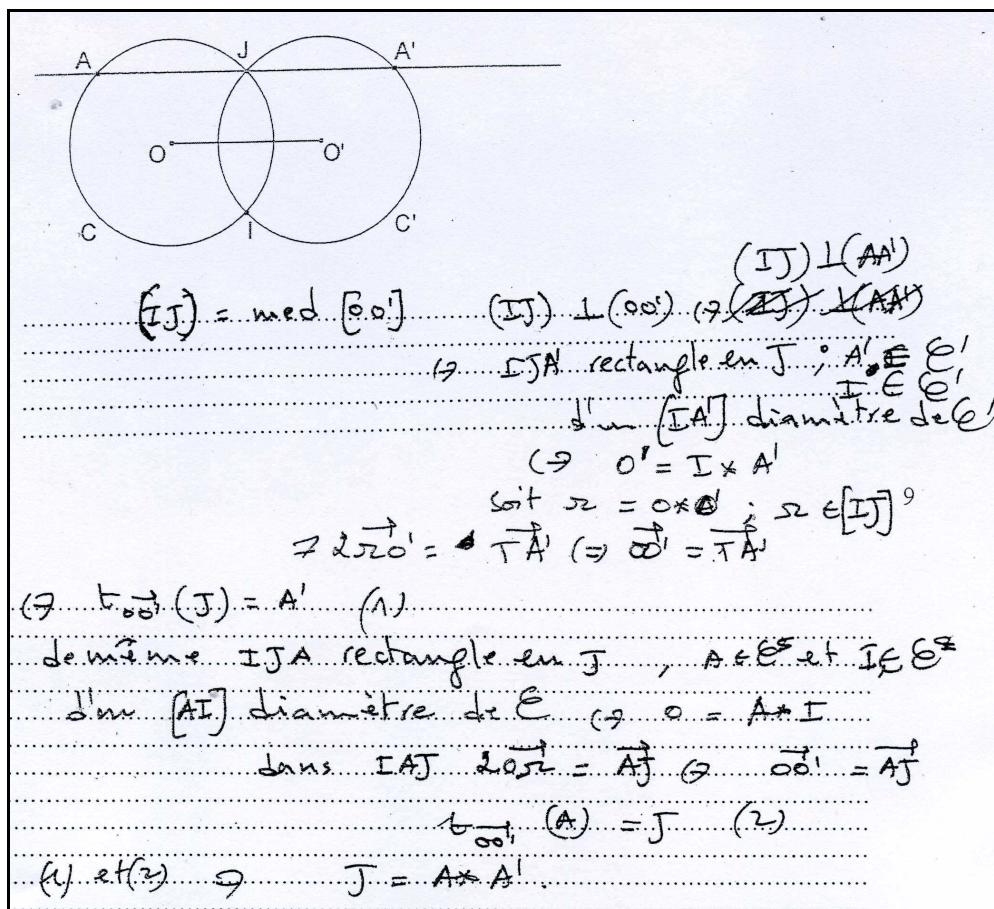 A J A'
O O'
C I C'
(IJ) ⊥ (AA')
(IJ) = med [OO'] (IJ) ⊥ (OO') ⇔ (IJ) ⊥ (AA')
⇔ IJA' rectangle en J ; A' ∈ C'
I ∈ C'
d'un [IA'] diamètre de C'
⇔ O' = I * A'
soit Ω = O * O' ; Ω ∈ [IJ] 9
2ΩO' = JA' ⇔ OO' = JA'
⇔ t_OO' (J) = A' (1)
de même IJA rectangle en J , A ∈ C et I ∈ C
d'un [AI] diamètre de C ⇔ O = A * I
dans IAJ 2OΩ = AJ ⇔ OO' = AJ
t_OO' (A) = J (2)
(1) et (2) ⇒ J = A * A'.